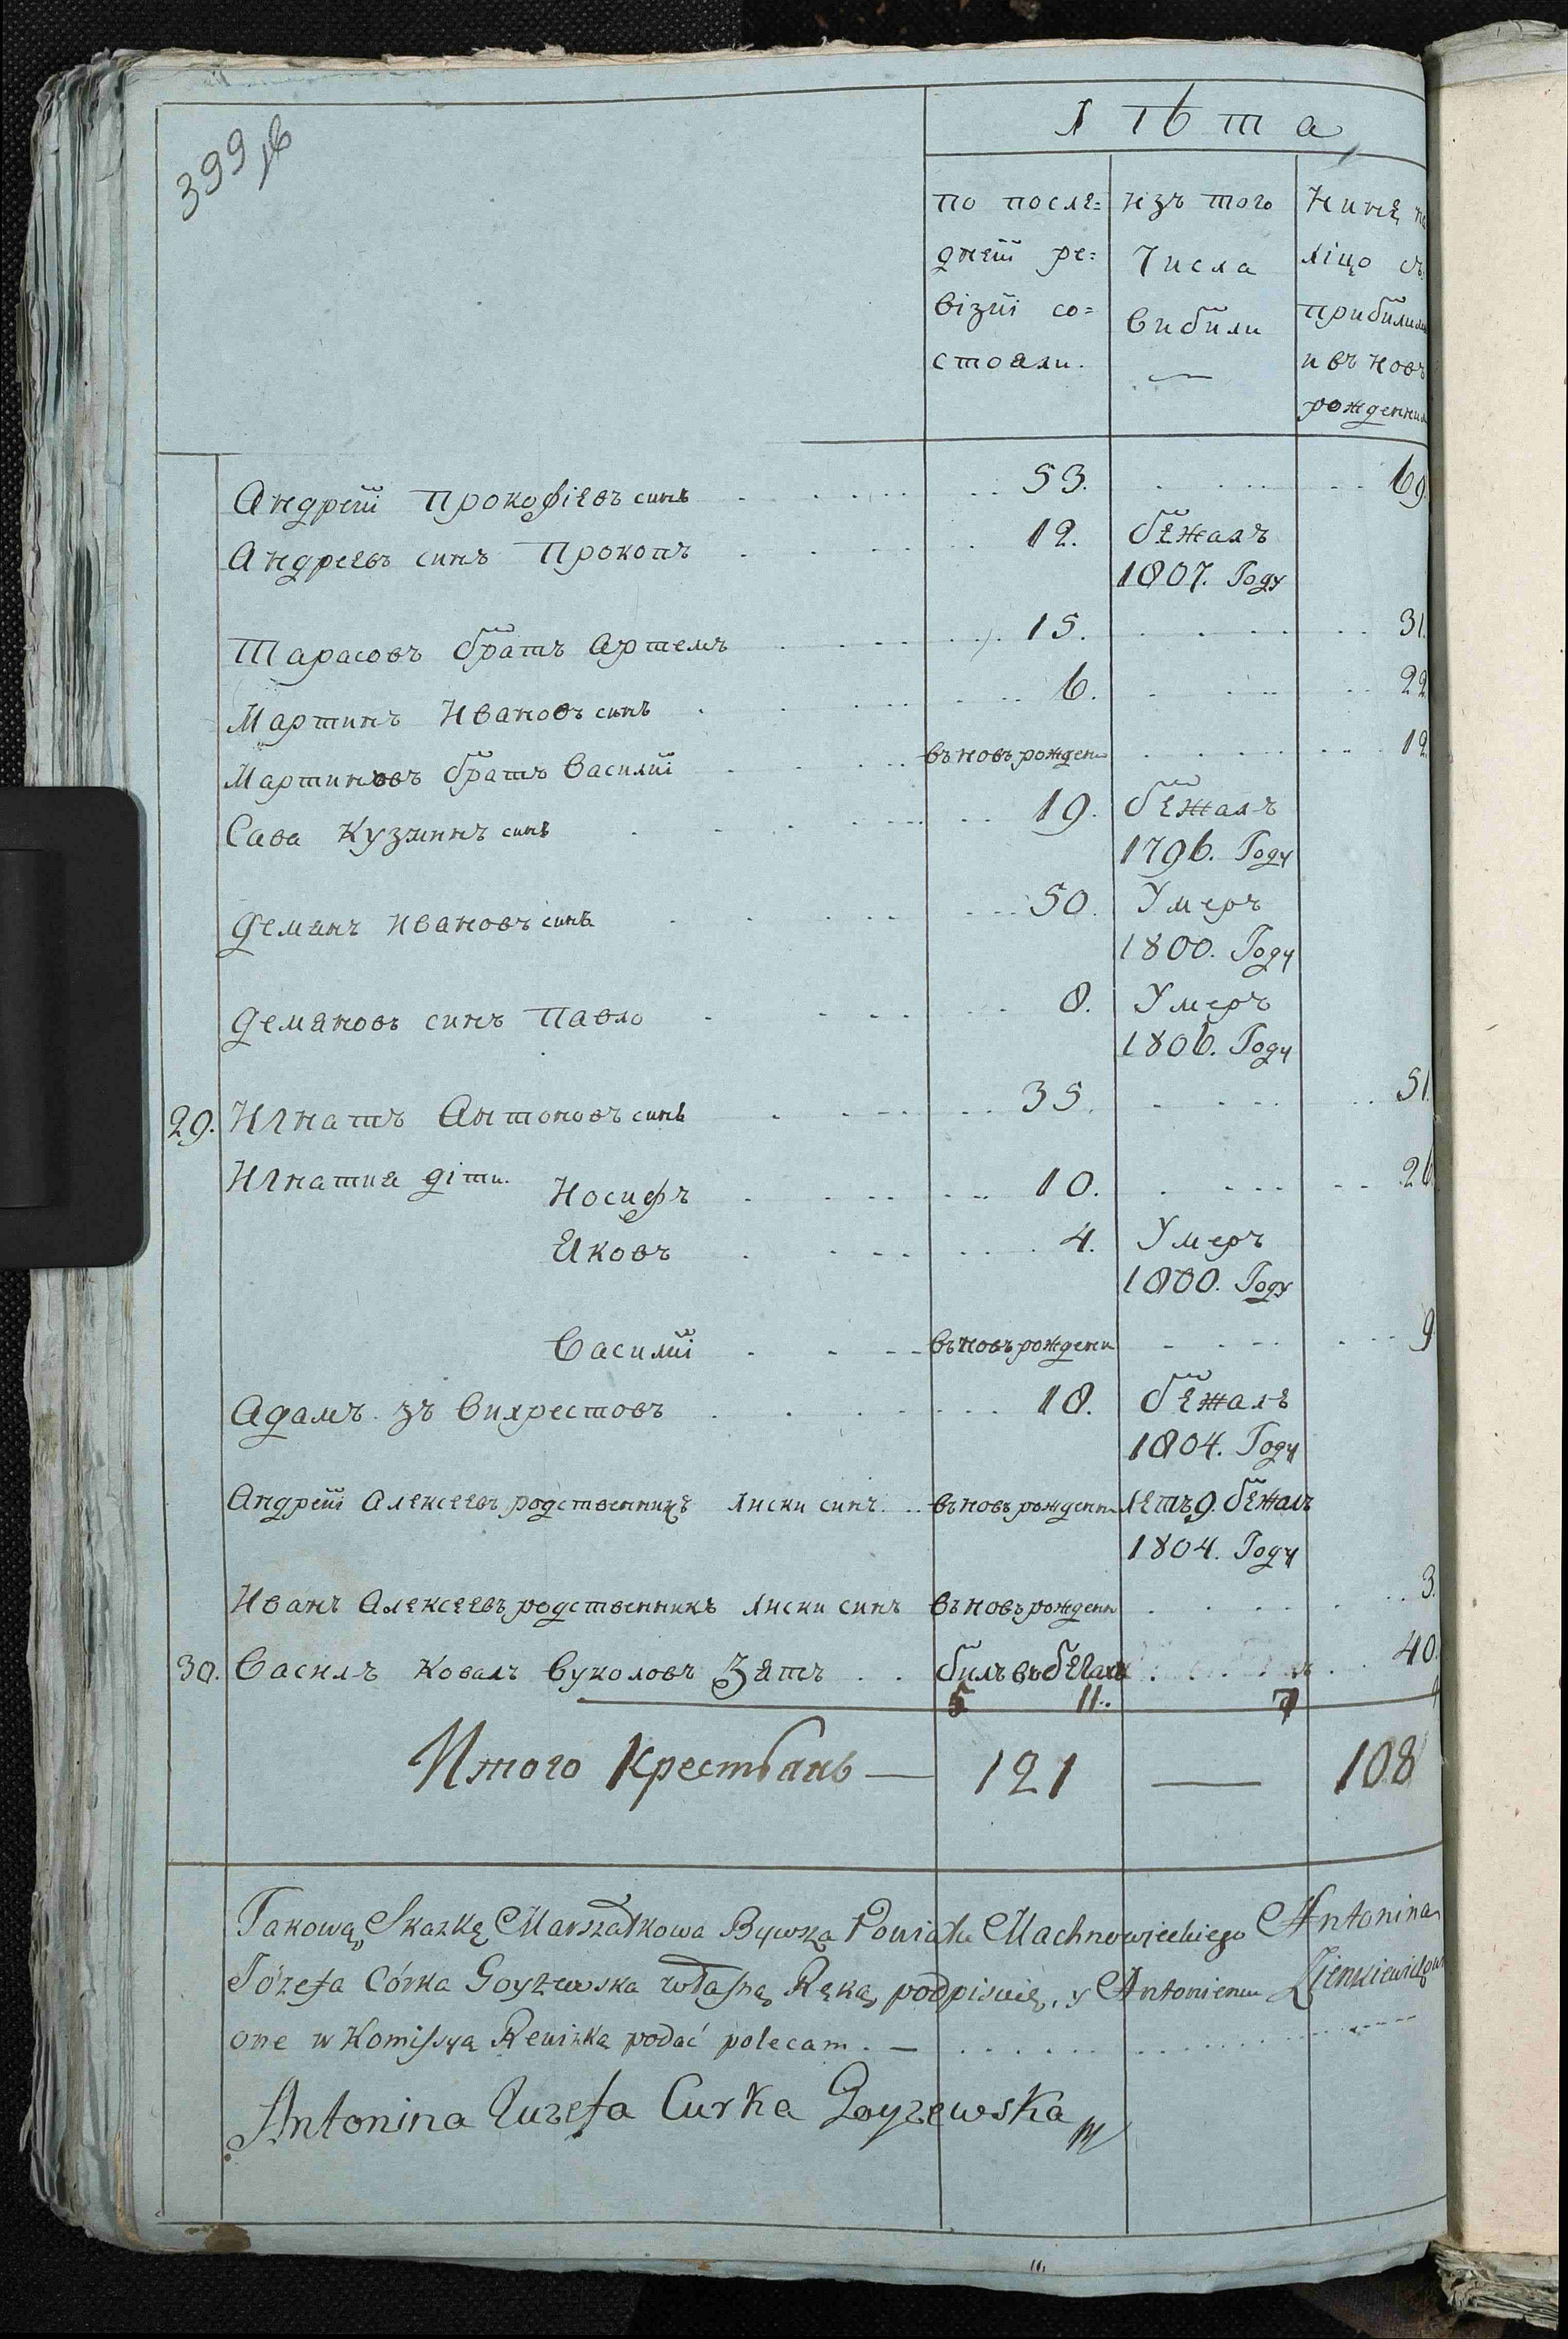 399 об
Лѣта
по послѣ=
дней ре=
візіи со=
стояли.
изъ того
числа
вибили
нинѣ на
ліцо съ
прибилими
и въ новъ
рожденними
Андрей Прокофіевъ синъ 53. 69.
Андреевъ синъ Прокопъ 12. бѣжалъ
1807. Году
Тарасовъ братъ Артемъ 15. 31.
Мартинъ Ивановъ синъ 6. 22.
Мартиновъ братъ Василий въ новъ рожденъ 12.
Сава Кузминъ синъ 19. бѣжалъ
1796. Году
Демянъ Ивановъ синъ 50. Умеръ
1800. Году
Демяновъ синъ Павло 8. Умеръ
1806. Году
29. Игнатъ Антоновъ синъ 35. 51.
Игнатия діти. Иосифъ 10. 26.
Яковъ 4. Умеръ
1800. Году
Василий въ новъ рожденн 9
Адамъ зъ вихрестовъ 18. бѣжалъ
1804. Году
Андрей Алексеевъ родственникъ Лиски синъ въ новъ рожденн лѣтъ 9. бѣжалъ
1804. Году
Иванъ Алексеевъ родственникъ Лиски синъ въ новъ рожденн 3.
30. Василъ Ковалъ Вуколовъ Зятъ билъ въ бѣгахъ 40.
5 11. 7
Итого Крестьянъ — 121 — 108
Takową Skazkę Marszałkowa Bywsza Powiatu Machnowieckiego Antonina
Józefa Córka Goyżewska własną Ręką podpisuię, y Antoniemu
one w Komissyą Rewizką podać polecam. —
Antonina Iuzefa Curka Goyzewska